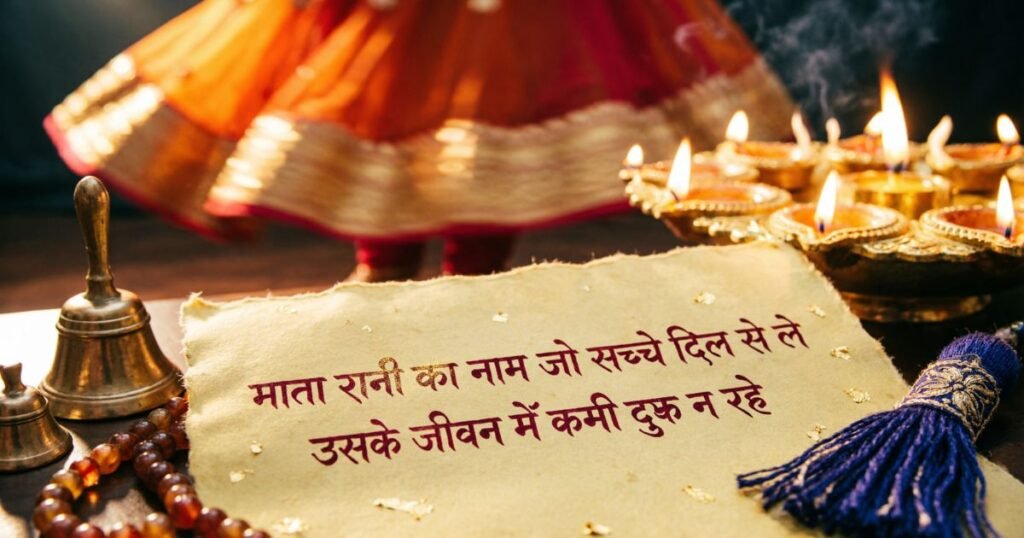 माता रानी का नाम जो सच्चे दिल से ले
उसके जीवन में कमी न रहे